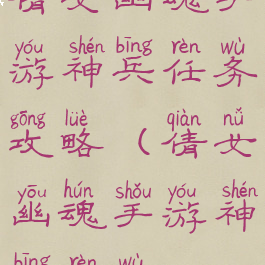 倩女幽魂手
yóu shén bīng rèn wù
游神兵任务
gōng lüè qiàn nǚ
攻略（倩女
yōu hún shǒu yóu shén
幽魂手游神
bīng rèn wù